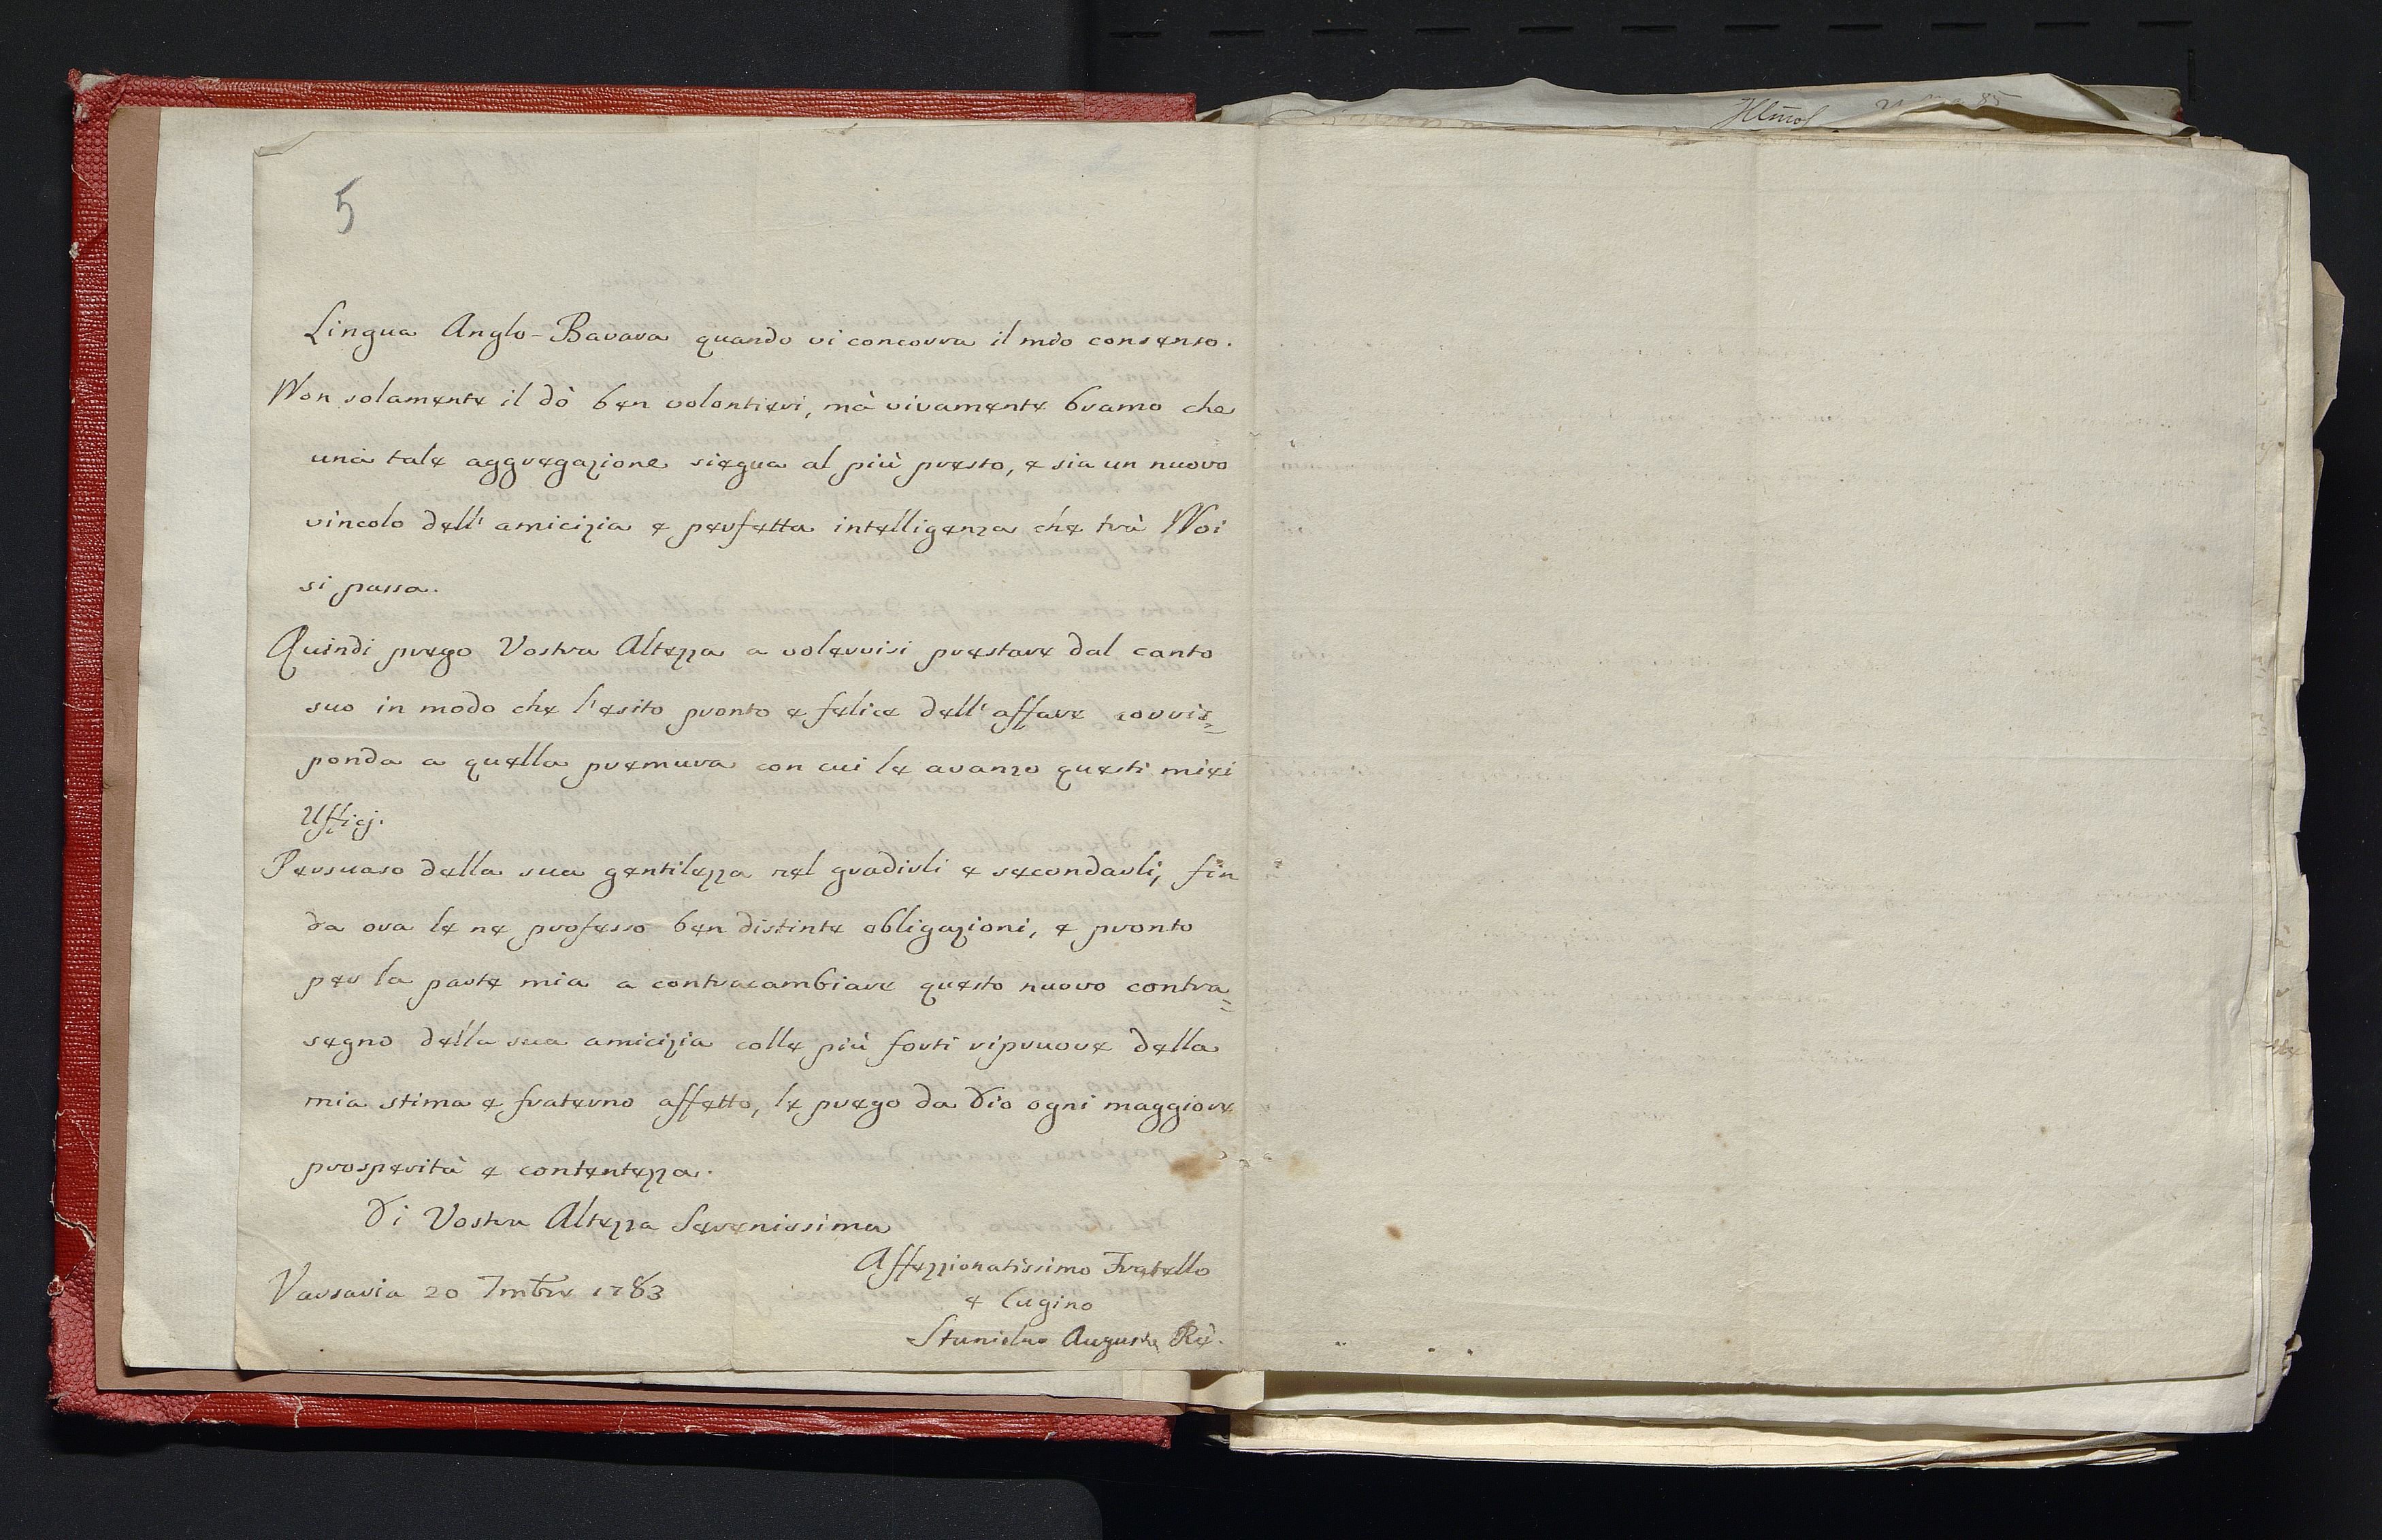 5
Lingua Anglo-Bavara quando vi concorra il mio consenso.
Non solamente il dò ben volontieri, mà vivamente bramo che
una tale aggregazione siegua al più presto, e sia un nuovo
vincolo dell' amicizia e perfetta intelligenza che trà Noi
si passa.
Quindi prego Vostra Altezza a volervisi prestare dal canto
suo in modo che l'esito pronto e felice dell' affare corris=
ponda a quella premura con cui le avanzo questi miei
Ufficj.
Persuaso della sua gentilezza nel gradirli e secondarli, fin
da ora le ne professo ben distinte obligazioni, e pronto
per la parte mia a contracambiare questo nuovo contra=
segno della sua amicizia colle più forti ripruove della
mia stima e fraterno affetto, le prego da Dio ogni maggiore
prosperità e contentezza.
Di Vostra Altezza Serenissima
Affezzionatissimo Fratello
e Cugino
Varsavia 20 7mbre 1783
Stanislao Augusto Rè.